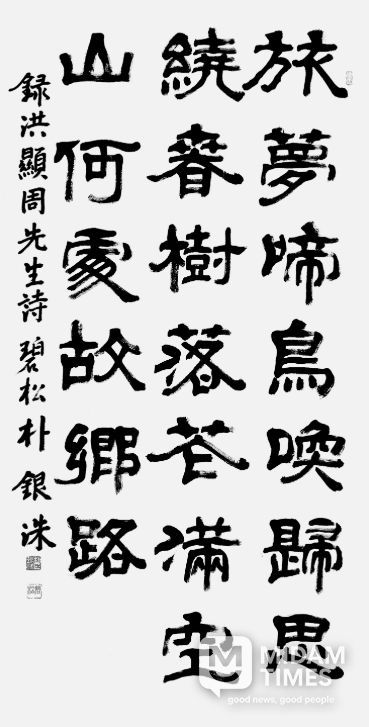 旅夢啼鳥喚歸思
繞春樹落花滿空
山何處故鄉路
録洪顯周先生詩 碧松 朴銀洙
MIDAM
TIMES
good news, good people